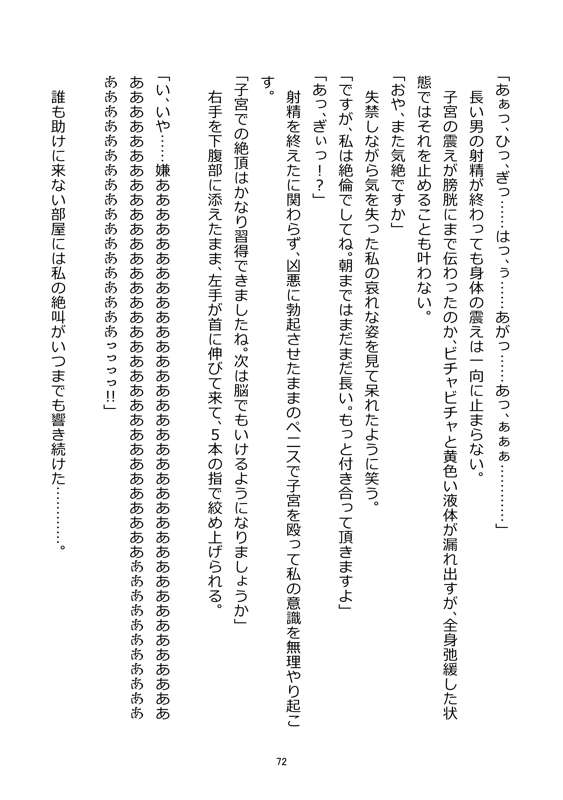 「あぁっ、ひっ、ぎっ……はっ、ぅ……あがっ……あっ、ぁぁぁ…………」
長い男の射精が終わっても身体の震えは一向に止まらない。
子宮の震えが膀胱にまで伝わったのか、ビチャビチャと黄色い液体が漏れ出すが、全身弛緩した状
態ではそれを止めることも叶わない。
「おや、また気絶ですか」
失禁しながら気を失った私の哀れな姿を見て呆れたように笑う。
「ですが、私は絶倫でしてね。朝まではまだまだ長い。もっと付き合って頂きますよ」
「あっ、ぎぃっ！？」
射精を終えたに関わらず、凶悪に勃起させたままのペニスで子宮を殴って私の意識を無理やり起こ
す。
「子宮での絶頂はかなり習得できましたね。次は脳でもいけるようになりましょうか」
右手を下腹部に添えたまま、左手が首に伸びて来て、５本の指で絞め上げられる。
「い、いや……嫌ああああああああああああああああああああああああああああああああああ
ああああああああああああああああああああああああああああああああああああああああ
ああああああああああああああああっっっっ!!」
誰も助けに来ない部屋には私の絶叫がいつまでも響き続けた…………。
72